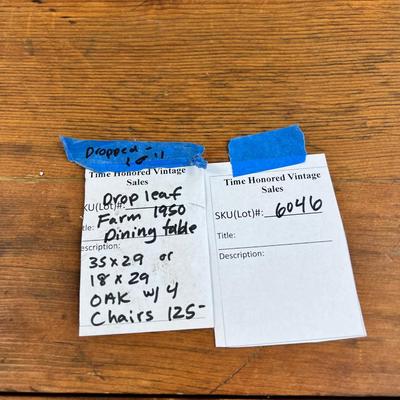 Dropped -
Time Honored Vintage
Sales
Drop leaf
SKU(Lot)#:
Farm 1950
Dining table
35x29 or
18x29
OAK w/ 4
Chairs 125-
Time Honored Vintage
Sales
SKU(Lot)#: 6046
Title:
Description: